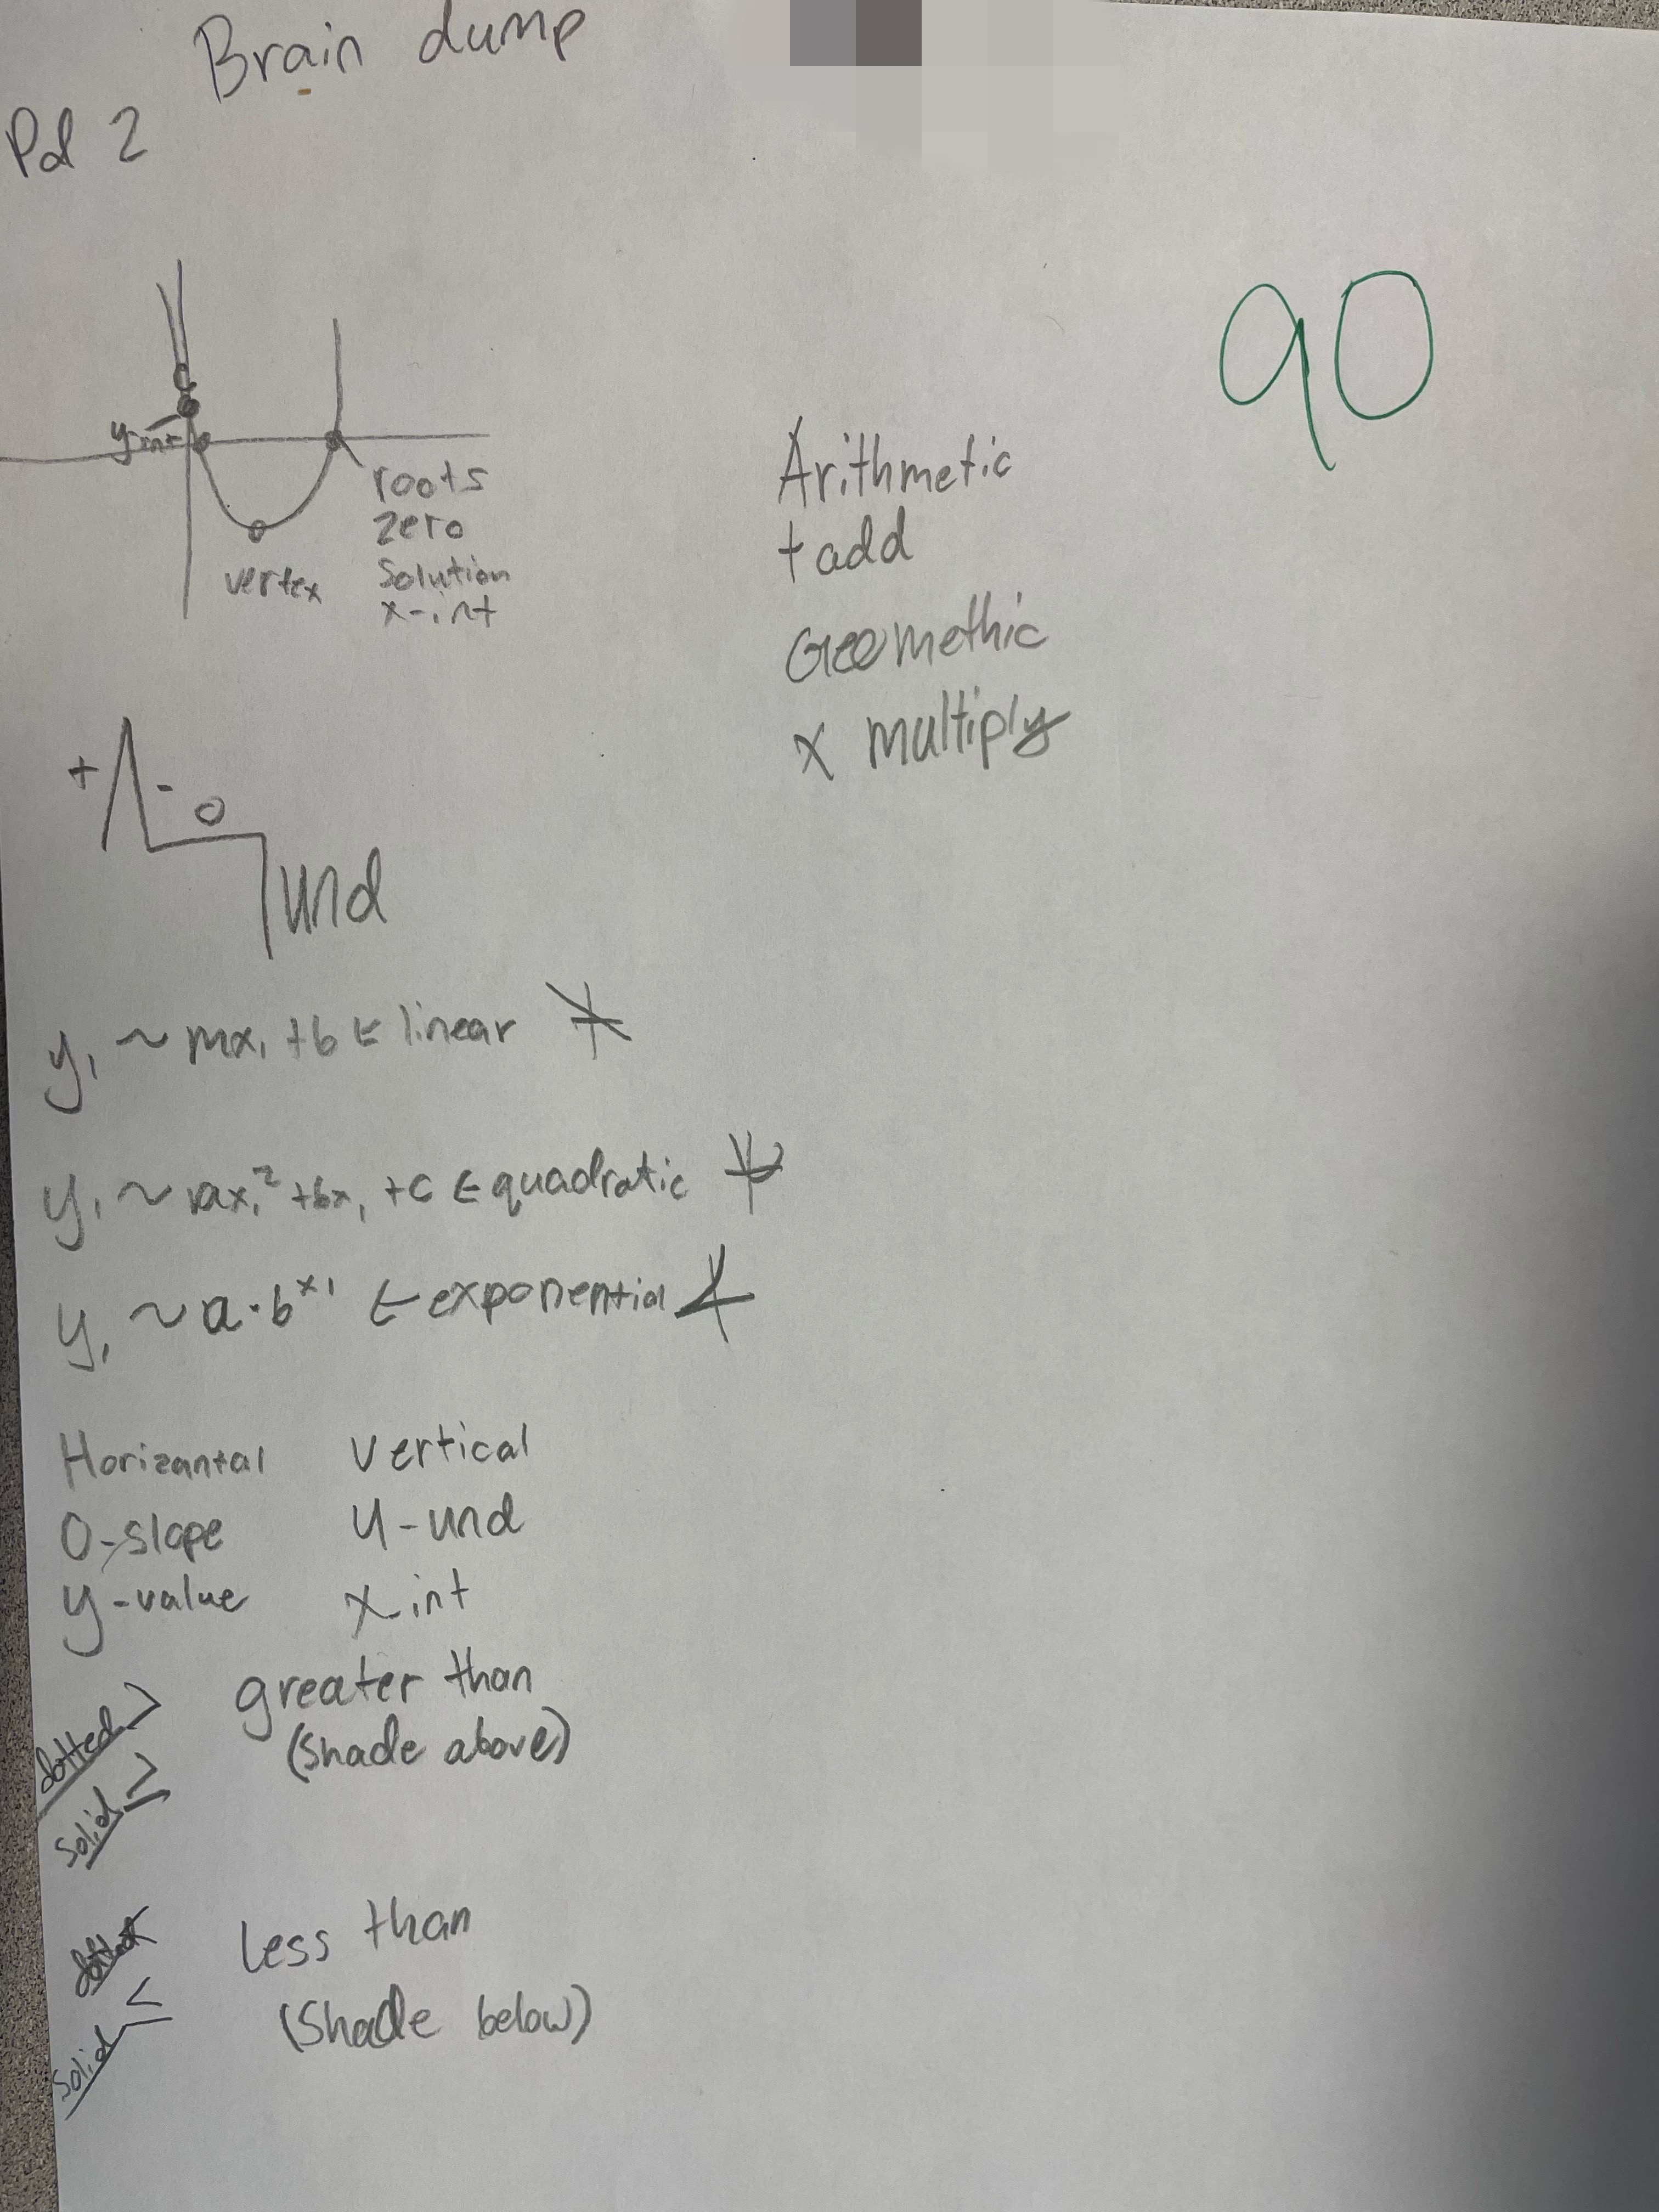 Brain dump
Pd 2
90
y-int
roots
zero
solution
x-int
vertex
Arithmetic
+ add
Geomethic
x multiply
+ - 0
und
y₁ ~ mx₁ + b ← linear
y₁ ~ ax₁² + bx₁ + c ← quadratic
y₁ ~ a · b^x₁ ← exponential
Horizantal vertical
0-slope u-und
y-value x-int
dotted > greater than
(shade above)
solid ≥
dotted less than
<
(shade below)
solid ≤